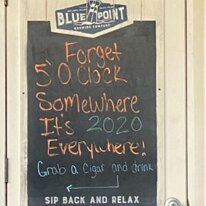 BLUE POINT
BREWING COMPANY
Forget
5 O'Clock
Somewhere
It's 2020
Everywhere!
Grab a cigar and drink
SIP BACK AND RELAX